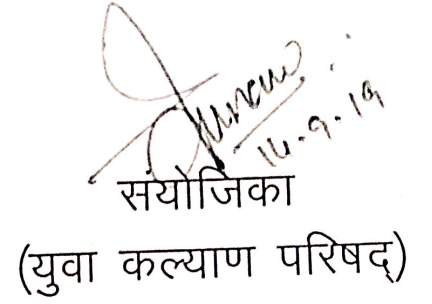 14-9-19
संयोजिका
(युवा कल्याण परिषद्)